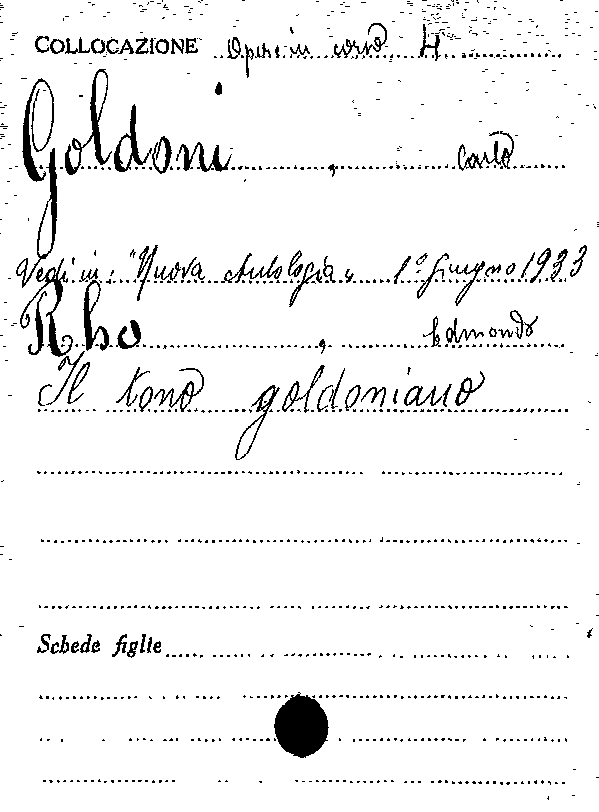 COLLOCAZIONE Opere in corso 4
Goldoni, Carlo
Vedi in: "Nuova Antologia" 1° giugno 1933
Rho, Edmondo
Il tono goldoniano
Schede figlie